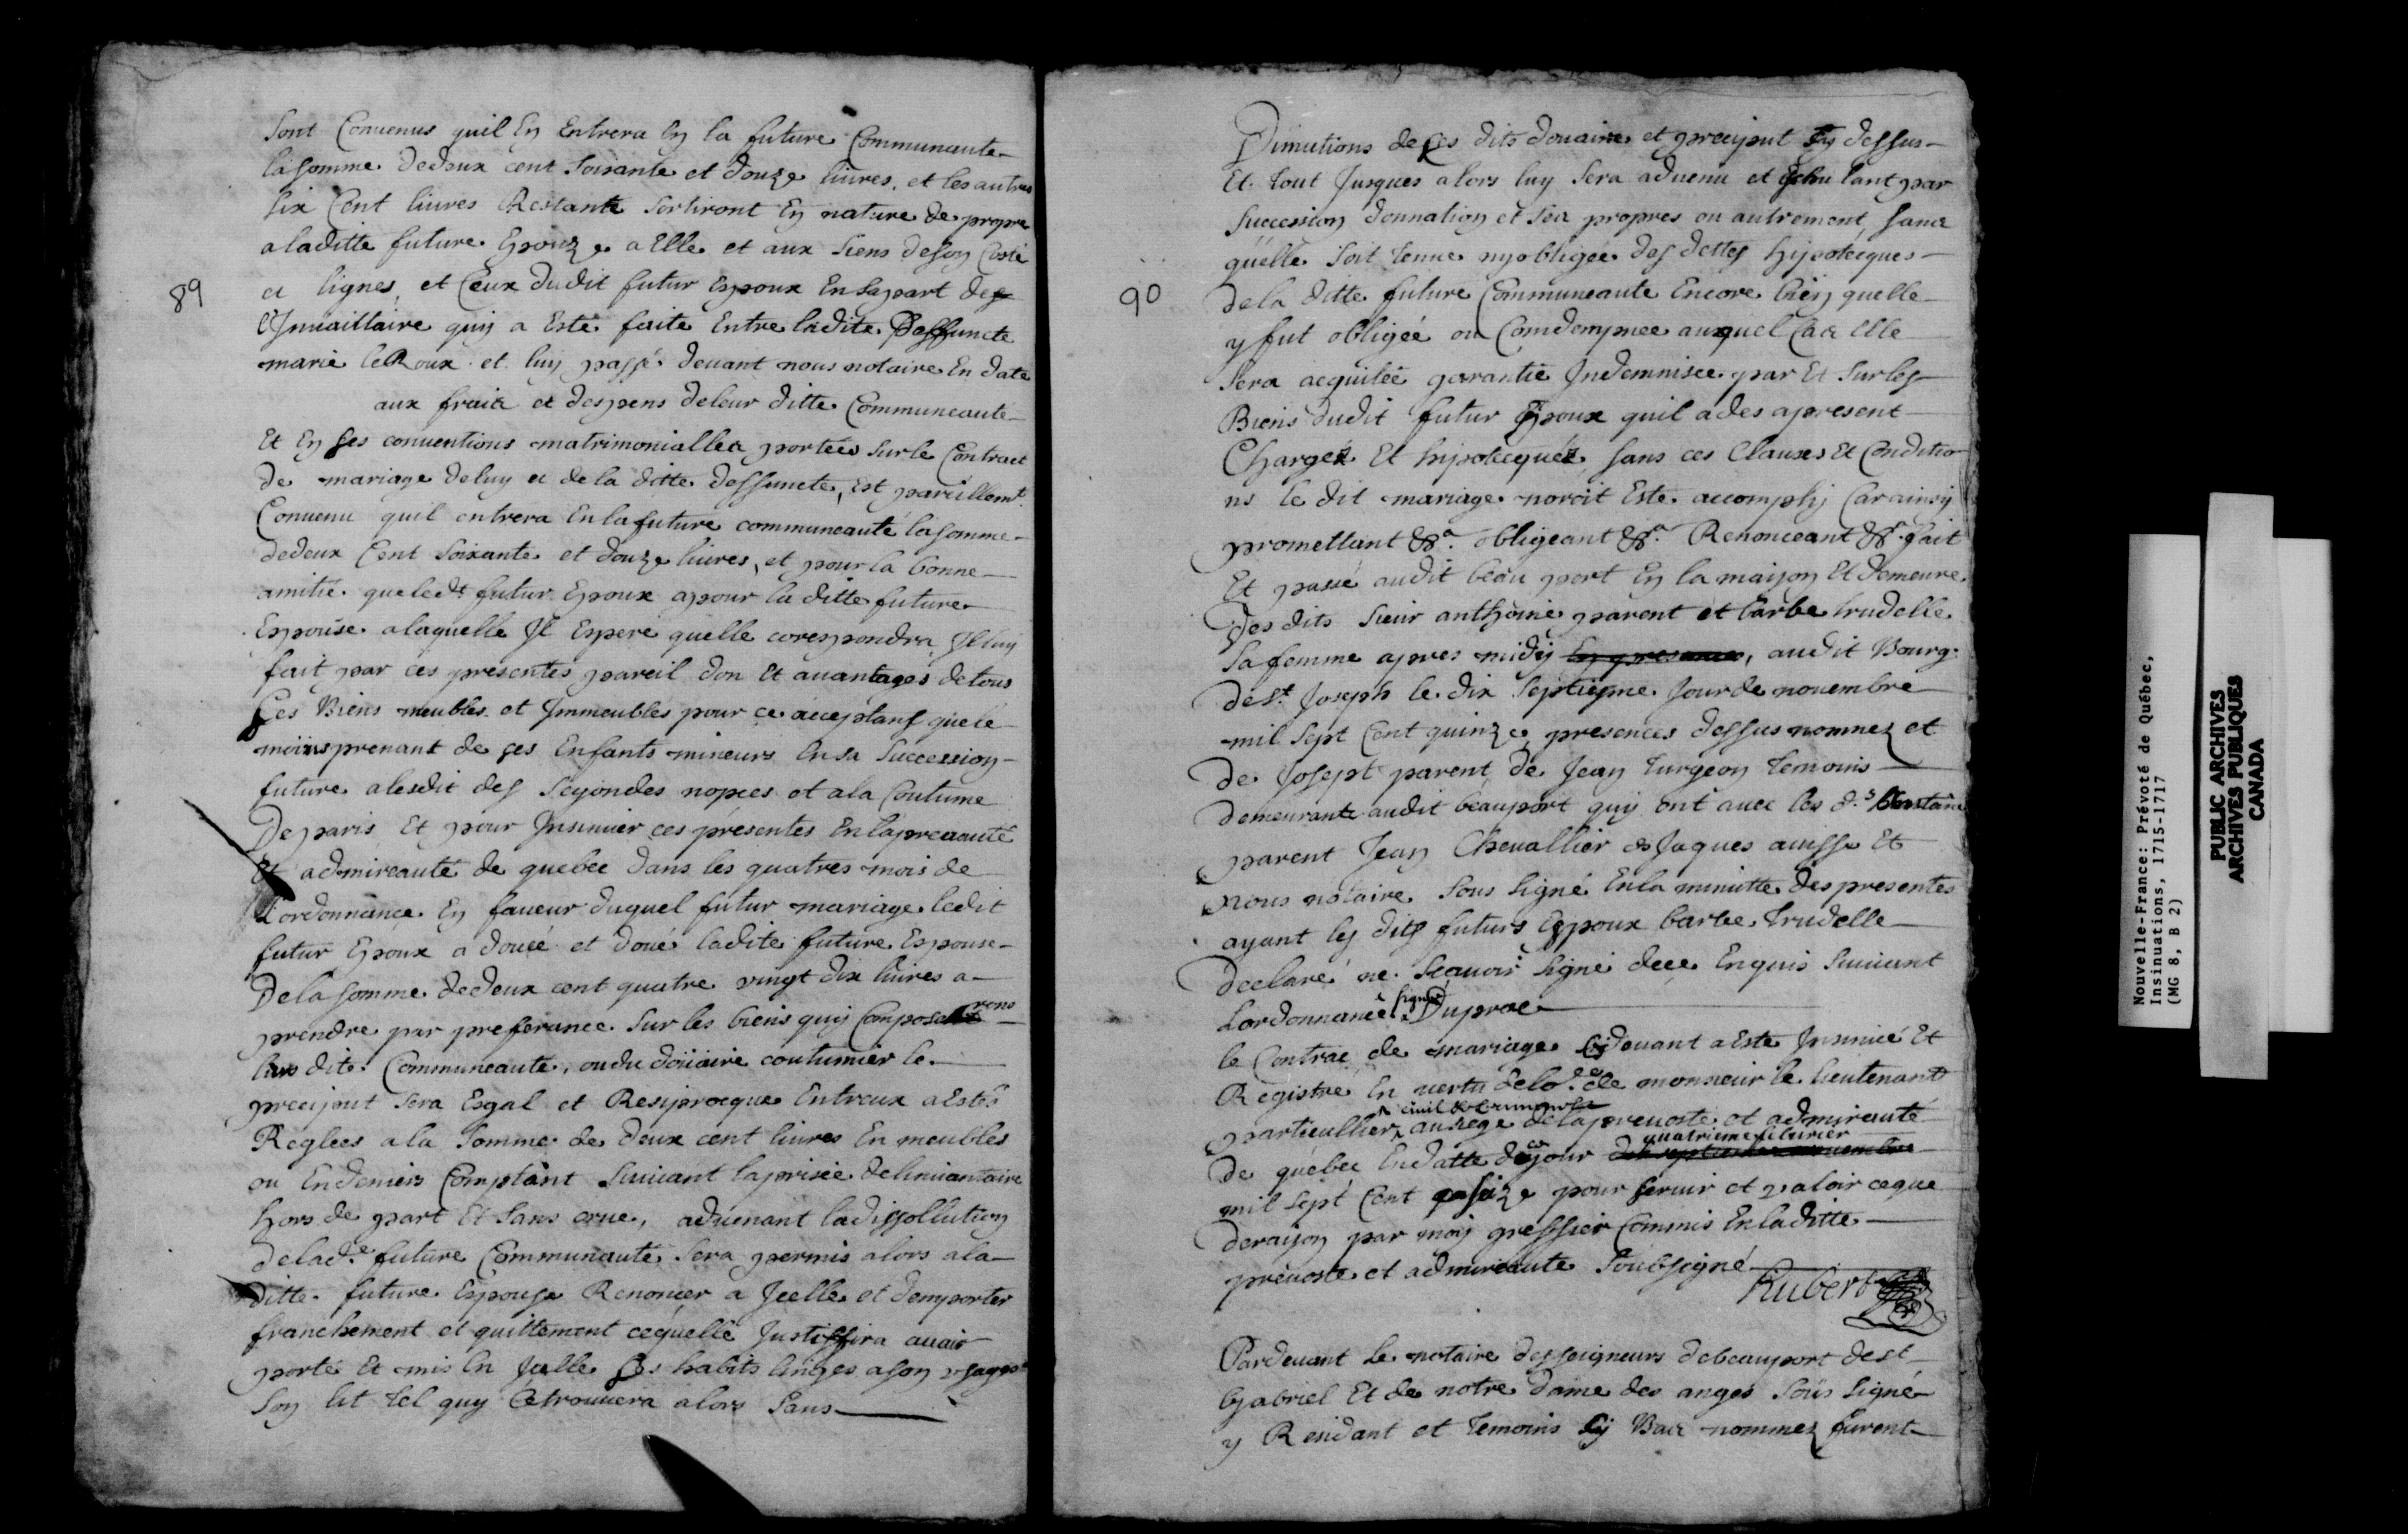 Sont Convenus quil En Entrera En la future Communeaute
la somme dedeux cent soixante et douze livres, et les autres
six Cent livres Restante sortiront En nature de propre
a laditte future Epouze a Elle et aux siens deson Costé
et lignes, et Ceux dudit futur Epoux En sa part des
89
l'Jnvaillaire quy a Esté faite Entre ladite Deffuncte
marie leRoux et luy passé devant nous notaire En date
aux fraix et despens deleur ditte Communeaute
Et En ses conventions matrimonialles portées sur le Contract
de mariage deluy et de la ditte deffuncte, Est pareillemt.
Convenu quil entrera En la future communeauté la somme
dedeux Cent soixante et douze livres, et pour la bonne
amitié queledt. futur Epoux a pour la ditte future
Espouse alaquelle Jl Espere quelle corespondra Jl luy
fait par ces presentes pareil don Et avantages detous
Ces Biens meubles et Jmmeubles pour ce acceptant que le
moins prenant de ses Enfants mineurs En sa Succession
future aledit des Segondes nopces et ala Coutume
De paris Et pour Jnsinuer ces presentes En laprevauté
Et admireauté de quebec dans les quatres mois de
L'ordonnance En faveur duquel futur mariage ledit
futur Epoux a doué et doué ladite future Espouse
De la somme dedeux cent quatre vingt dix livres a
prendre par preferance sur les biens quy Composerons
leur dite Communeaute, ou du doüaire coutumier le
preciput sera Esgal et Resiprocque Entreux a Estés
Reglées a la somme de deux cent livres En meubles
ou Endeniers Comptant Suivant laprisée delinvantaire
hors de part Et sans crue, advenant ladissollution
delade. future Communauté sera permis alors ala
ditte future Espouse Renoncer a Jcelle et demporter
franchement et quittement cequelle Justiffira avair
porté Et mis En Jcelle ses habits linges ason usages
son lit tel quy Cetrouvera alors Sans
Dimutions de ces dits douaire et preciput Cy dessus
Et tout Jusques alors luy sera advenu et Echu tant par
succession donnation et ses propres ou autrement sans
quelle soit tenue ny obligée des dettes hipotecques
90
dela ditte future Communeaute Encore bien quelle
y fut obligée ou Comdempnee auxquel Cas Elle
sera acquitée garantie Jndemnisee par Et sur les
Biens dudit futur Epoux quil a des apresent
Chargez Et hipotecquéz, sans ces Clauses Et Conditio
ns le dit mariage noroit Este accomply Car ainsy
promettant &a. obligeant &a. Renonceant &a. fait
Et passé audit beau port En la maison Et demeure
Des dits sieur anthoine parent et barbe trudelle
sa femme apres midy En presence, audit Bourg
de st. Joseph le dix septieme Jour de novembre
mil sept Cent quinze presences dessus nommez et
de Josept parent de Jean turgeon temoins
demeurante audit beauport quy ont avec les ds.
parent Jean Chevallier & Jaques avisse Et
nous notaire sous signé En la minutte des presentes
ayant les dits futurs Eppoux barbe trudelle
declaré ne sçavoir signé dece Enquis suivant
Lordonnance signé Duprac
le Contrac de mariage Cy devant a Este Jnsinué Et
Registre En vertu delo.ce de monsieur le lieutenant
particullier civil & criminelle au siege de la prevoste et admireauté
de québec En datte de ce jour dix septieme novembre quatrieme febvrier
mil sept Cent seize pour servir et valoir ceque
deraison par moy greffier Commis En laditte
prevoste et admireaute soubsigné
Rubert
Pardevant le notaire des seigneurs debeauport dest
Gabriel Et de notre dame des anges sous signé
y Residant et temoins Cy Bas nommez furent
Nouvelle-France: Prévoté de Québec,
Insinuations, 1715-1717
(MG 8, B 2)
PUBLIC ARCHIVES
ARCHIVES PUBLIQUES
CANADA